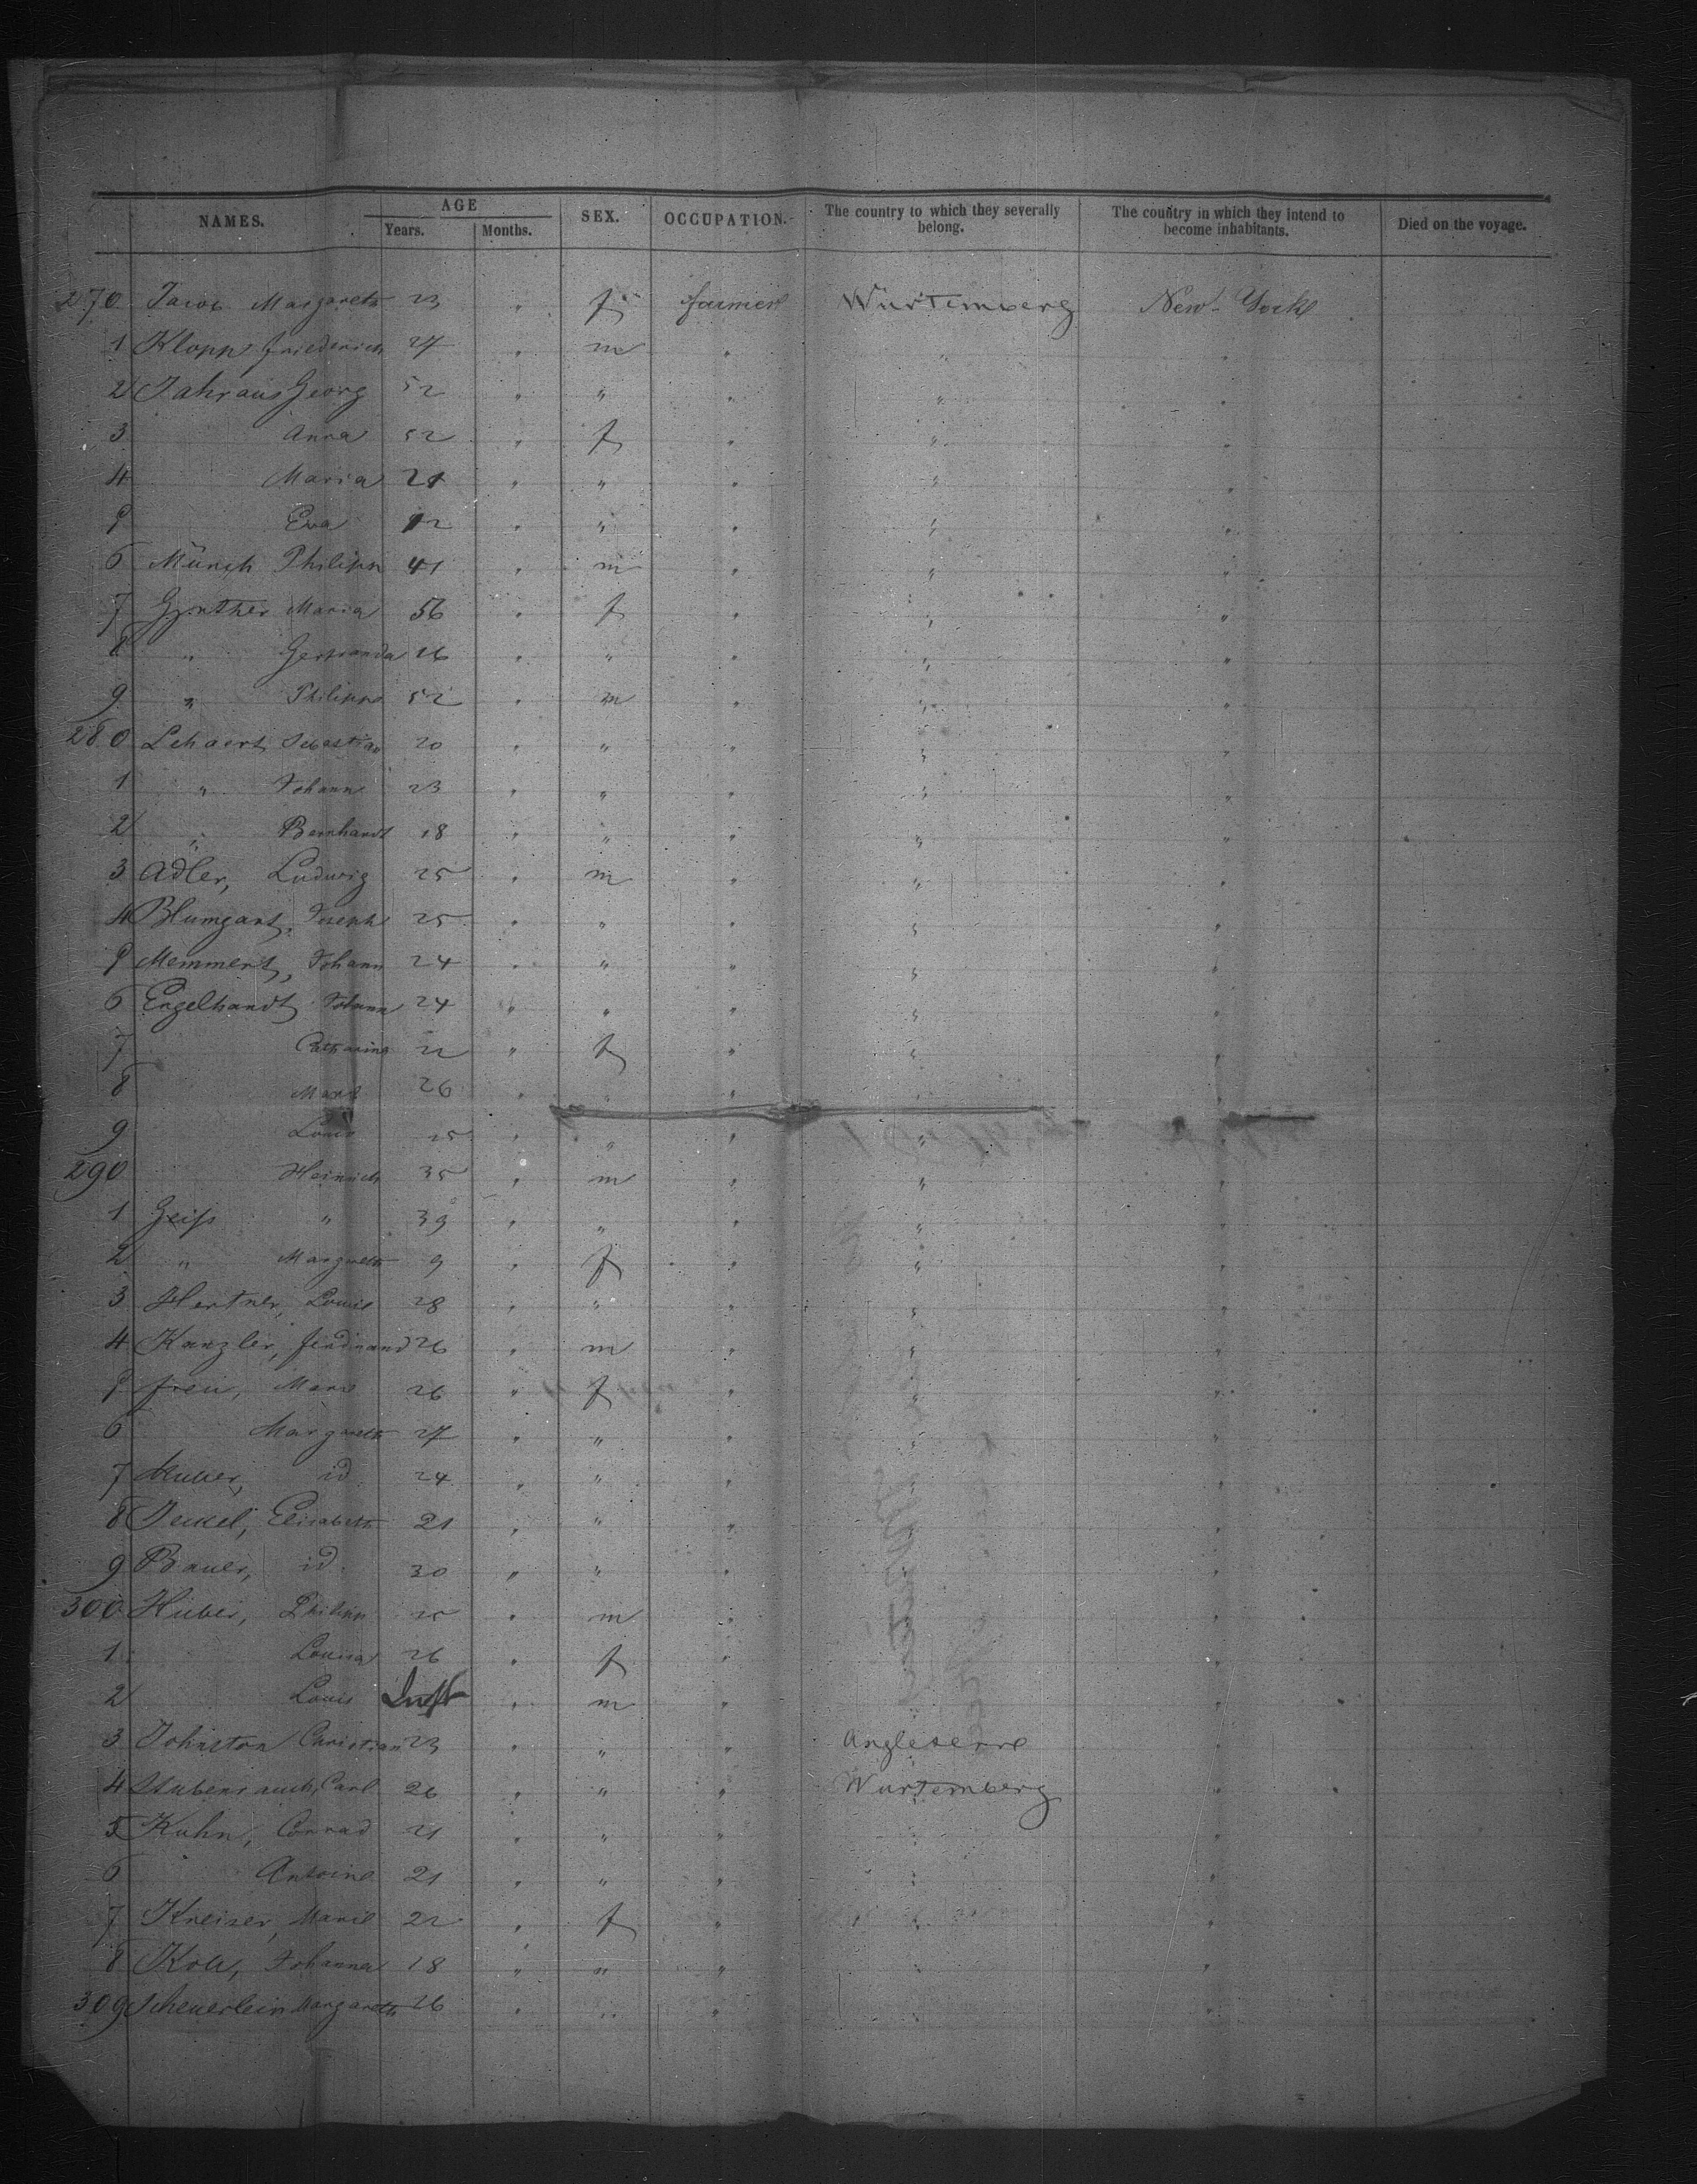 NAMES. AGE SEX. OCCUPATION. The country to which they severally belong. The country in which they intend to become inhabitants. Died on the voyage.
Years. Months.
270 Jacob Margareth 23 " f farmer Würtemberg New-York
1 Klopp friederich 27 " m " " "
2 Jahraus Georg 52 " " " " "
3 Anna 52 " f " " "
4 Maria 21 " " " " "
5 Eva 12 " " " " "
6 Münch Philipp 41 " m " " "
7 Gunther Maria 56 " f " " "
8 " 16 " " " " "
9 " Philipp 52 " m " " "
280 Lehaert Sebastian 20 " " " " "
1 " Johann 23 " " " " "
2 " Bernhardt 18 " " " " "
3 Adler, Ludwig 25 " m " " "
4 Blumgart, Joseph 25 " " " " "
5 Memmert, Johann 24 " " " " "
6 Engelhardt Johann 24 " " " " "
7 Catharina 22 " f " " "
8 Marie 26 " " " " "
9 Louis 25 " " " " "
290 Heinrich 35 " m " " "
1 Geiß " 39 " " " " "
2 " Margareth 9 " f " " "
3 Hertner, Louise 28 " " " " "
4 Kanzler, ferdinand 26 " m " " "
5 frei, Marie 26 " f " " "
6 Margareth 27 " " " " "
7 id 24 " " " " "
8 Elisabeth 21 " " " " "
9 Bauer, id. 30 " " " " "
300 Huber, Philipp 25 " m " " "
1 Louisa 26 " f " " "
2 Louis " m " " "
3 Johnston Christian 23 " " " Angleterre "
4 Stubenrauch, Carl 26 " " " Wurtemberg "
5 Kuhn, Conrad 21 " " " " "
6 Antoine 21 " " " " "
7 Kreiser, Marie 22 " f " " "
8 Johanna 18 " " " " "
309 Scheuerlein Margareth 26 " " " " "